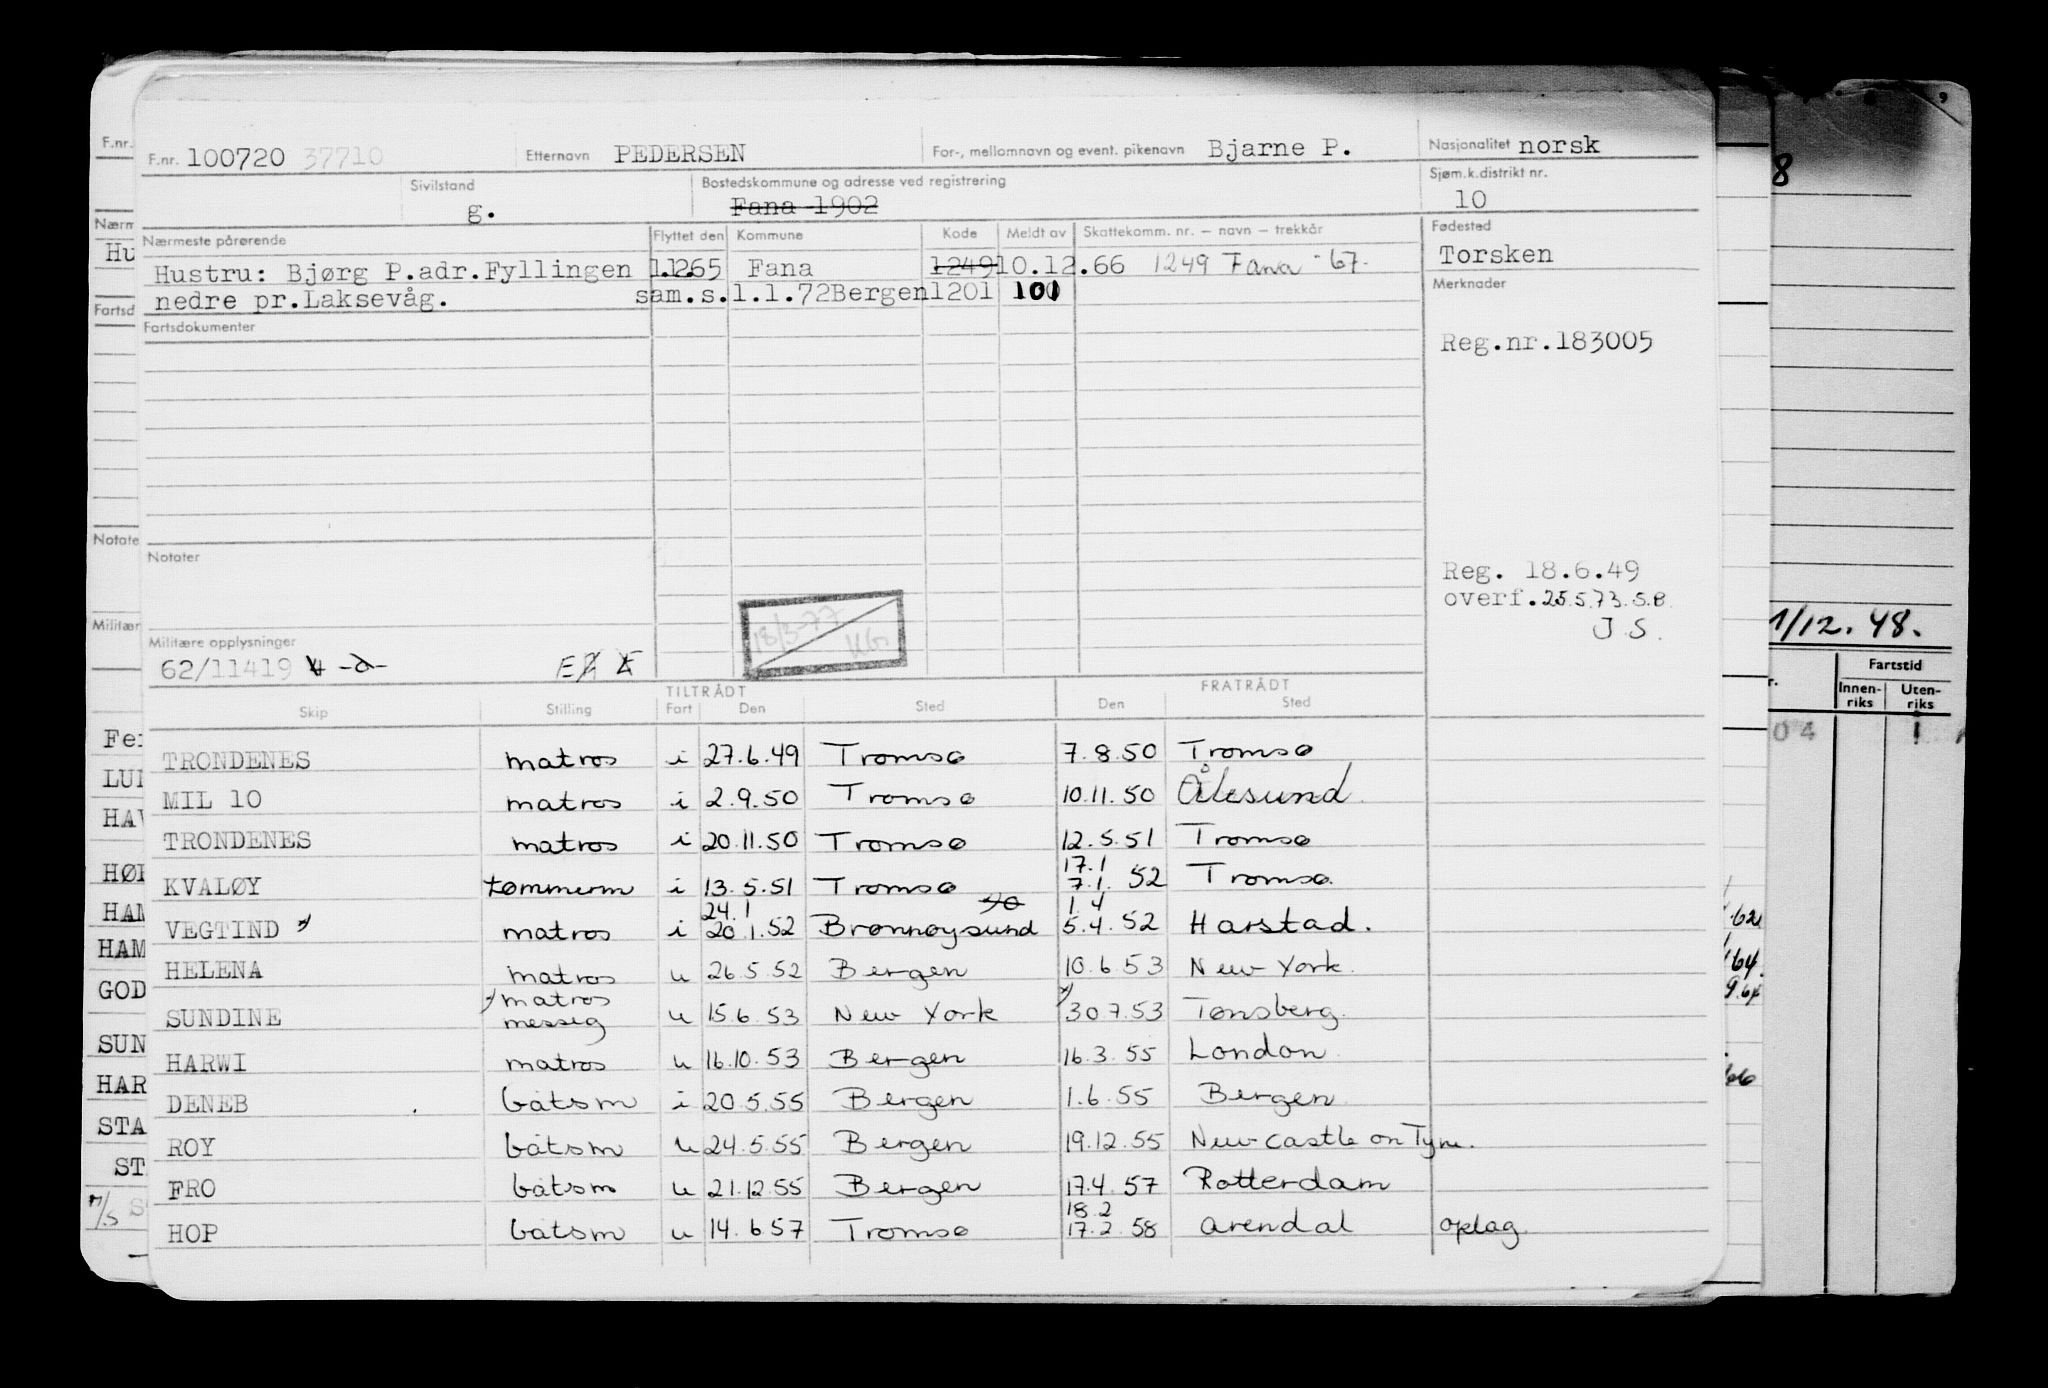 F.nr. 100720 37710 Etternavn PEDERSEN For-, mellomnavn og event. pikenavn Bjarne P. Nasjonalitet norsk
Sivilstand g. Bostedskommune og adresse ved registrering Fana 1902 Sjøm.k.distrikt nr. 10
Nærmeste pårørende Flyttet den Kommune Kode Meldt av Skattekomm. nr. – navn – trekkår Fødested
Hustru: Bjørg P.adr.Fyllingen 1.1265 Fana 1249 10.12.66 1249 Fana -67- Torsken
nedre pr.Laksevåg. sam.s.1.1.72 Bergen 1201 101 Merknader
Fartsdokumenter
Reg.nr.183005
Notater
Reg. 18.6.49
overf.25.5.73.S.B.
J.S.
18/3-77
Militære opplysninger
62/11419
TILTRÅDT FRATRÅDT
Skip Stilling Fart Den Sted Den Sted
TRONDENES matros i 27.6.49 Tromsø 7.8.50 Tromsø
MIL 10 matros i 2.9.50 Tromsø 10.11.50 Ålesund
TRONDENES matros i 20.11.50 Tromsø 12.5.51 Tromsø
17.1
KVALØY tømmerm i 13.5.51 Tromsø 7.1. 52 Tromsø
24.1 1.4
VEGTIND x) matros i 20.1.52 Brønnøysund 5.4.52 Harstad.
HELENA matros u 26.5.52 Bergen 10.6.53 New York.
x) matros x)
SUNDINE messeg u 15.6.53 New York 30.7.53 Tønsberg.
HARWI matros u 16.10.53 Bergen 16.3.55 London
DENEB båtsm i 20.5.55 Bergen 1.6.55 Bergen
ROY båtsm u 24.5.55 Bergen 19.12.55 Newcastle on Tyne.
FRO båtsm u 21.12.55 Bergen 17.4.57 Rotterdam
18.2
HOP båtsm u 14.6.57 Tromsø 17.2.58 Arendal oplag
F.nr.
Nærm
Hu
Fartsd
Notate
Militær
Fer
LUI
HAV
HØI
HAM
HAM
GOD
SUN
HAR
STA
ST
M/S S
8
1/12.48.
Fartstid
Innen-
riks
Uten-
riks
04 1
.62
64.
9.64
66